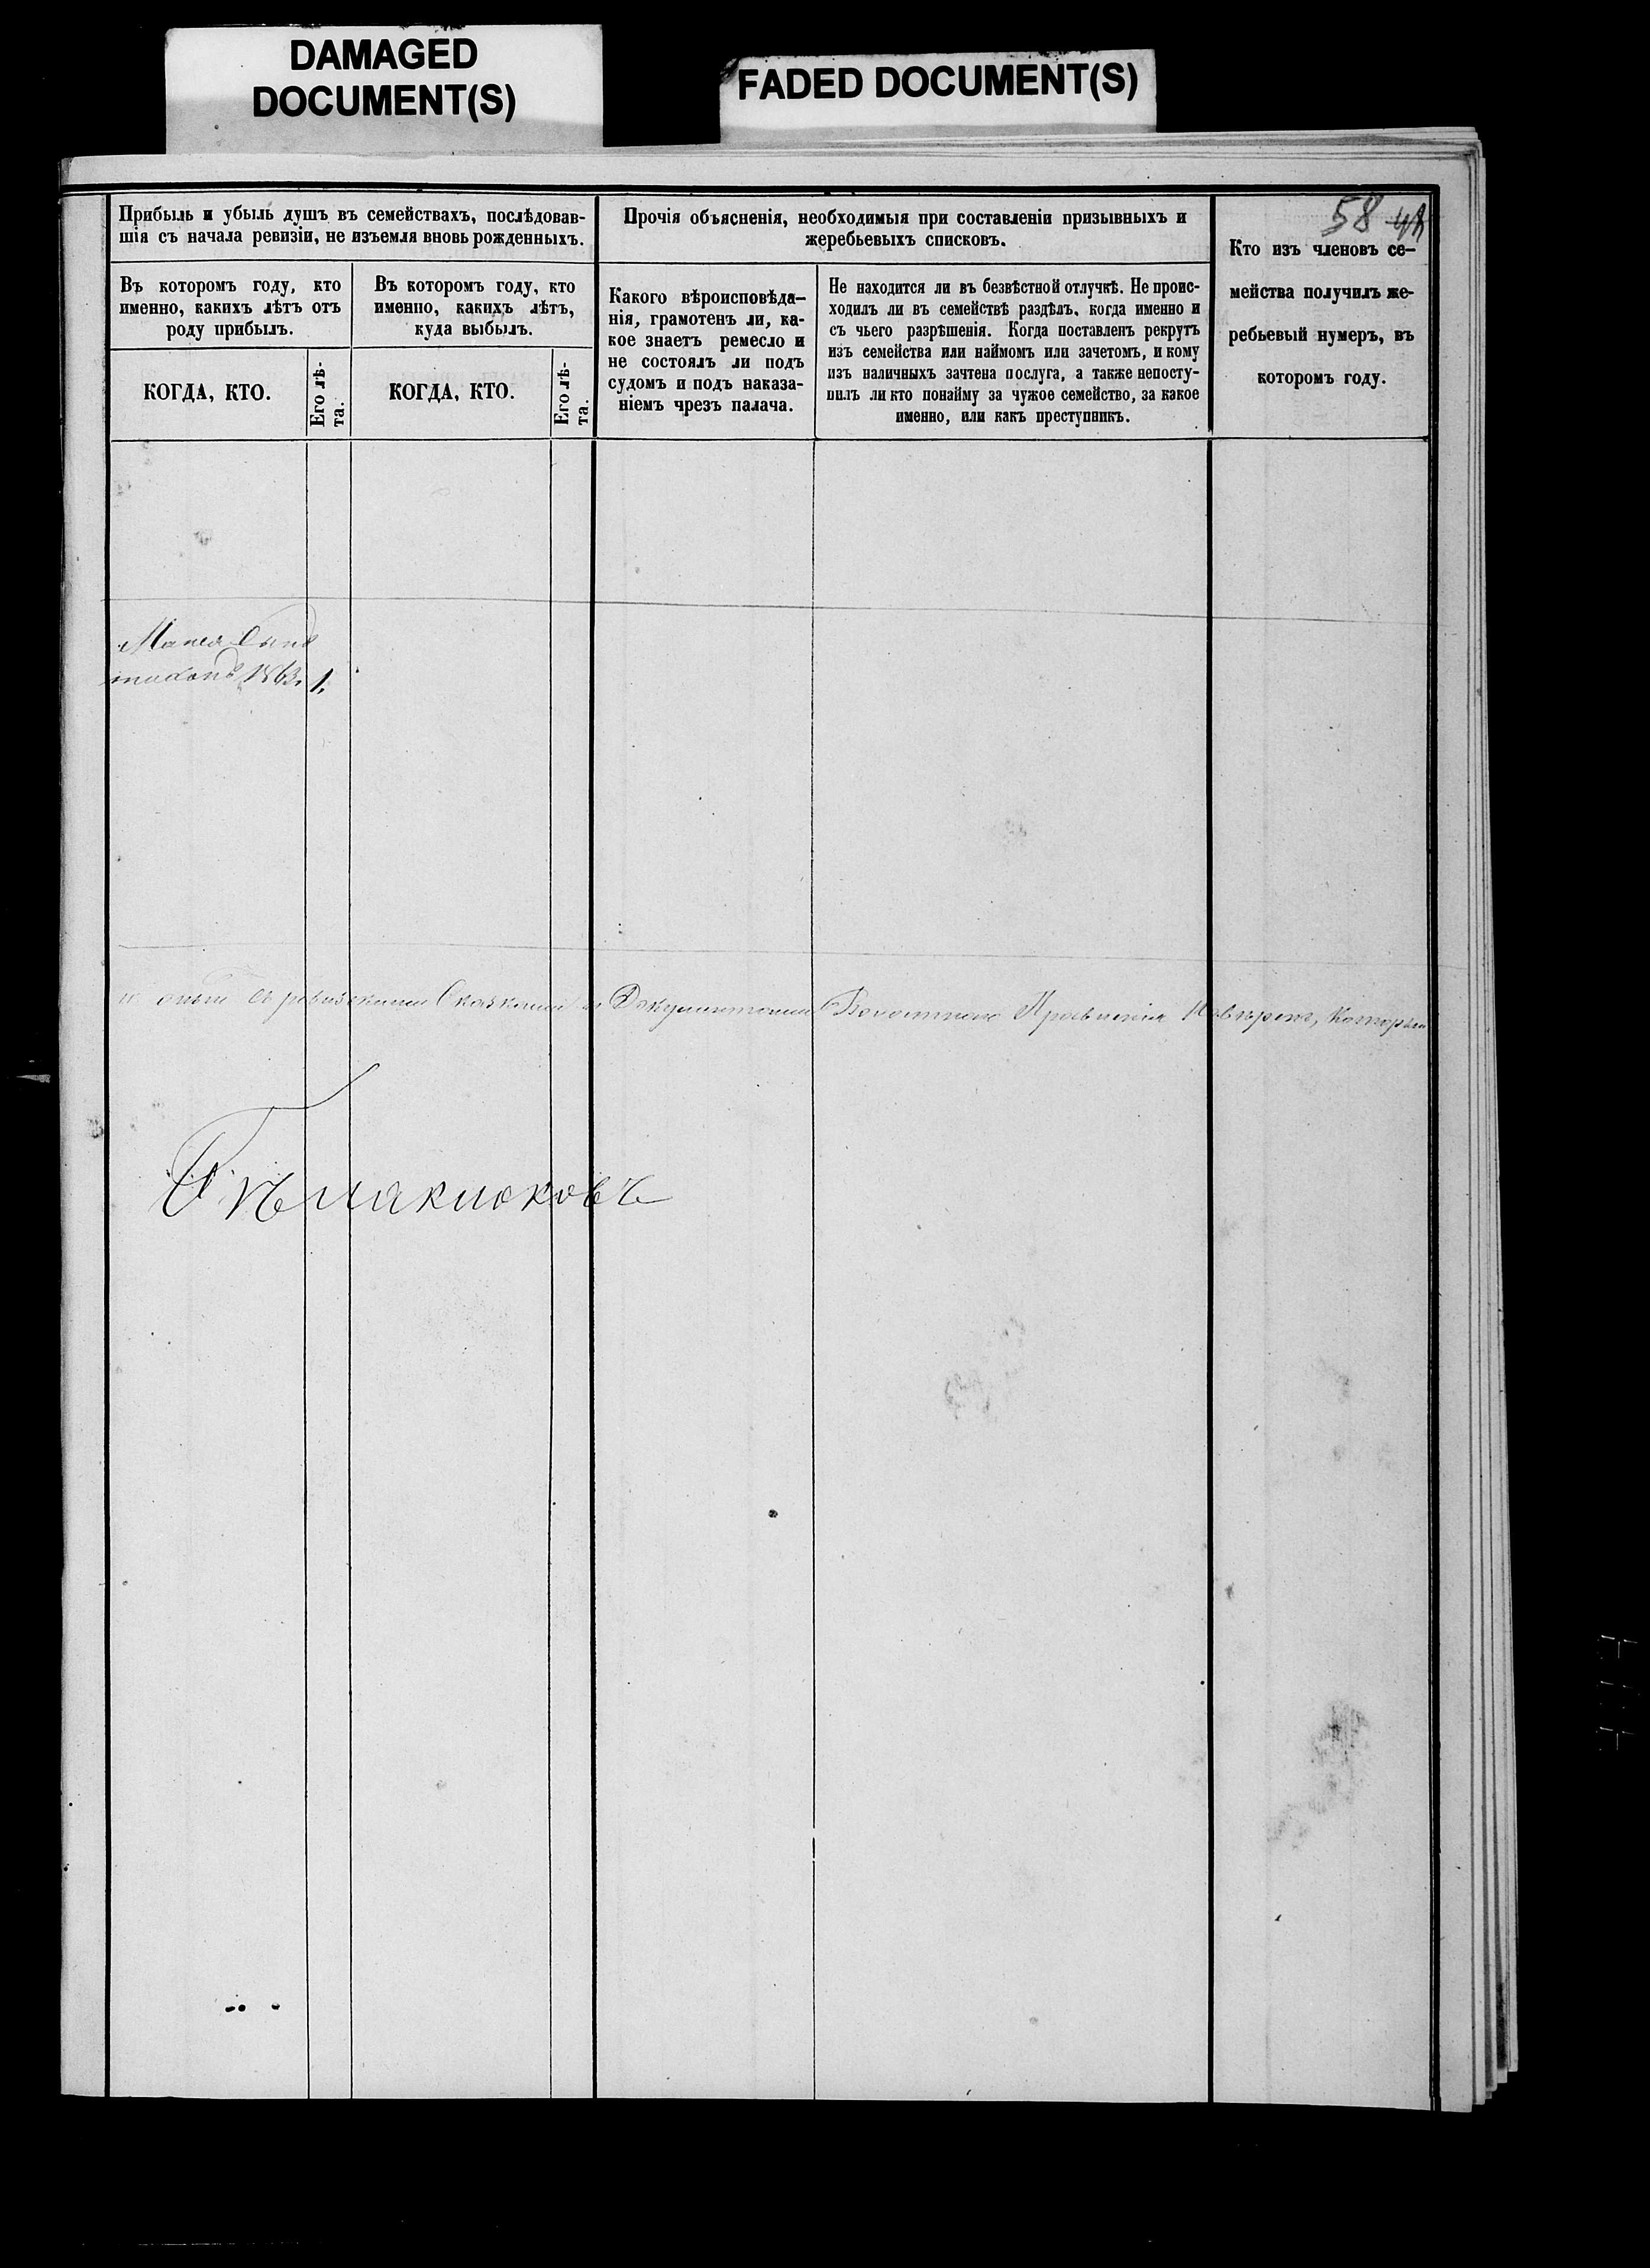 DAMAGED
DOCUMENT(S)
FADED DOCUMENT(S)
58
Прибыль и убыль душъ въ семействахъ, послѣдовав-
шія съ начала ревизіи, не изъемля вновь рожденныхъ.
Въ которомъ году, кто
именно, какихъ лѣтъ отъ
роду прибылъ.
КОГДА, КТО.
Его лѣ-
та.
Въ которомъ году, кто
именно, какихъ лѣтъ,
куда выбылъ.
КОГДА, КТО.
Его лѣ-
та.
Прочія объясненія, необходимыя при составленіи призывныхъ и
жеребьевыхъ списковъ.
Какого вѣроисповѣда-
нія, грамотенъ ли, ка-
кое знаетъ ремесло и
не состоялъ ли подъ
судомъ и подъ наказа-
ніемъ чрезъ палача.
Не находится ли въ безвѣстной отлучкѣ. Не проис-
ходилъ ли въ семействѣ раздѣлъ, когда именно и
съ чьего разрѣшенія. Когда поставленъ рекрутъ
изъ семейства или наймомъ или зачетомъ, и кому
изъ наличныхъ зачтена послуга, а также непосту-
пилъ ли кто понайму за чужое семейство, за какое
именно, или какъ преступникъ.
Кто изъ членовъ се-
мейства получилъ же-
ребьевый нумеръ, въ
которомъ году.
Сынъ
1863. 1.
съ ревизскими Сказками и Документами Волостного Правленія Повѣренъ, Которы